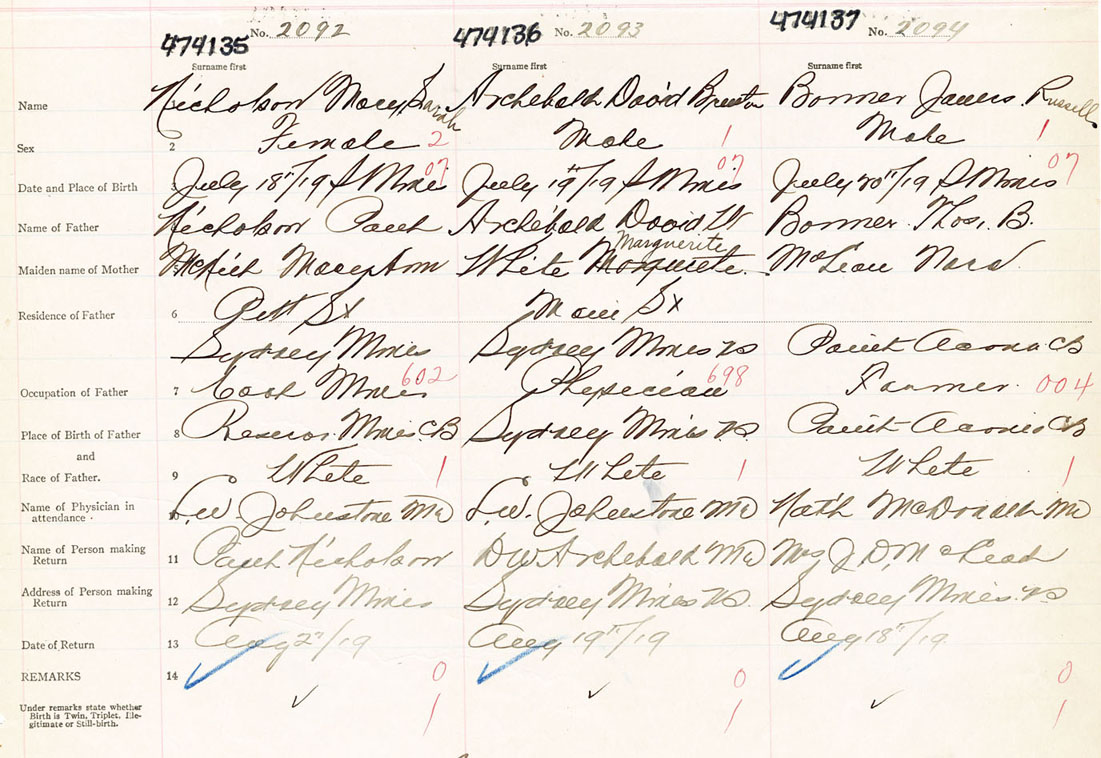 474135 No. 2092 474136 No. 2093 474137 No. 2094
Surname first Surname first Surname first
Name Nicholson Mary Sarah Archibald David Bonner James Russell
Sex 2 Female 2 Male 1 Male 1
07 07 07
Date and Place of Birth 3 July 18"/19 S Mines July 19"/19 S Mines July 20"/19 S Mines
Name of Father Nicholson Archibald David W Bonner Thos. B.
Marguerite
Maiden name of Mother Mary Ann White McLean
Residence of Father 6 Pitt St Main St
Sydney Mines Sydney Mines NS Point Aconi CB
Occupation of Father 7 Coal Miner 602 Physician 698 Farmer 004
Place of Birth of Father 8 Reserve Mines CB Sydney Mines NS Point Aconi CB
and
Race of Father. 9 White 1 White 1 White 1
Name of Physician in
attendance 10 L.W. Johnstone MD L.W. Johnstone MD McDonald MD
Name of Person making
Return 11 Nicholson DW Archibald MD Mrs J.D. McLeod
Address of Person making
Return 12 Sydney Mines Sydney Mines NS. Sydney Mines NS
Date of Return 13 Aug 2"/19 Aug 19"/19 Aug 18"/19.
REMARKS 14 0 0 0
Under remarks state whether
Birth is Twin, Triplet, Ille-
gitimate or Still-birth. 1 1 1